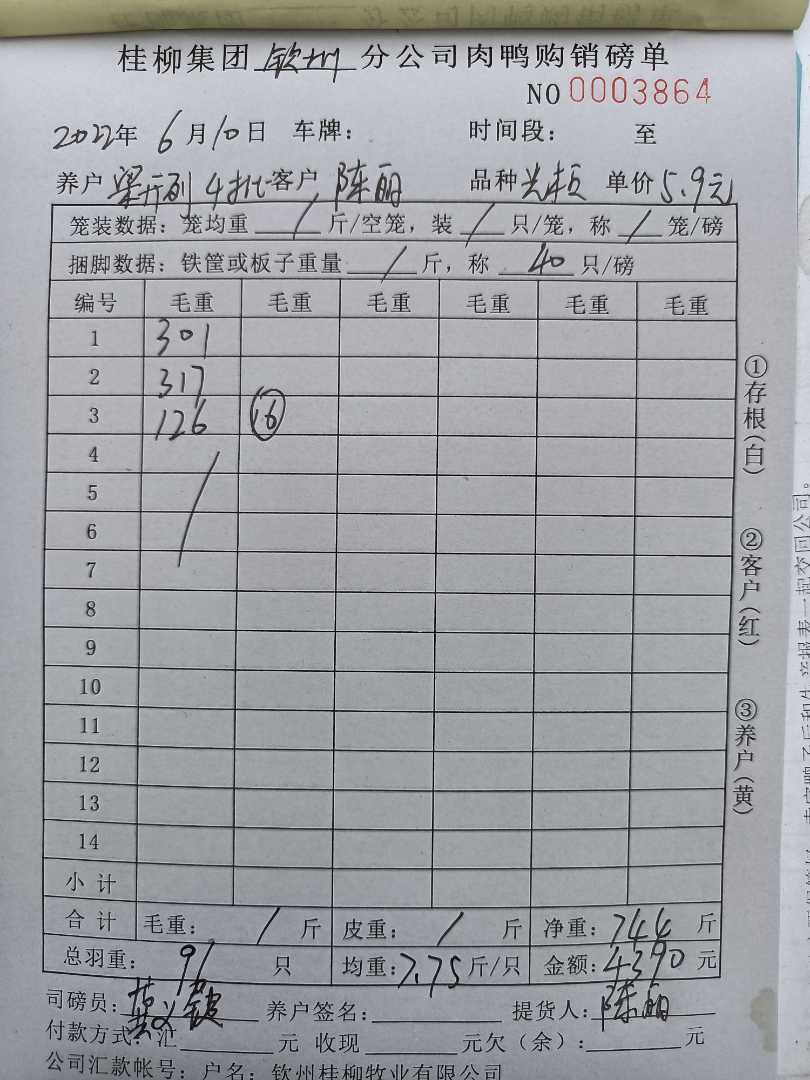 桂柳集团 钦州 分公司肉鸭购销磅单
NO 0003864
2022年 6月10日 车牌： 时间段： 至
养户 梁开列 4批 客户 陈丽 品种 单价 5.9元
笼装数据：笼均重 / 斤/空笼，装 / 只/笼，称 / 笼/磅
捆脚数据：铁筐或板子重量 / 斤，称 40 只/磅
编号 毛重 毛重 毛重 毛重 毛重 毛重
1 301
2 317
3 126 16
4
5
6
7
8
9
10
11
12
13
14
小计
合计 毛重： / 斤 皮重： / 斤 净重：744 斤
总羽重： 91 只 均重：7.75 斤/只 金额：4390 元
司磅员： 养户签名： 提货人：陈丽
付款方式：汇 元 收现 元欠（余）： 元
公司汇款帐号：户名：钦州桂柳牧业有限公司
①存根（白）
②客户（红）
③养户（黄）